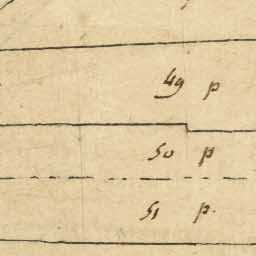 49 p
50 p
51 p.